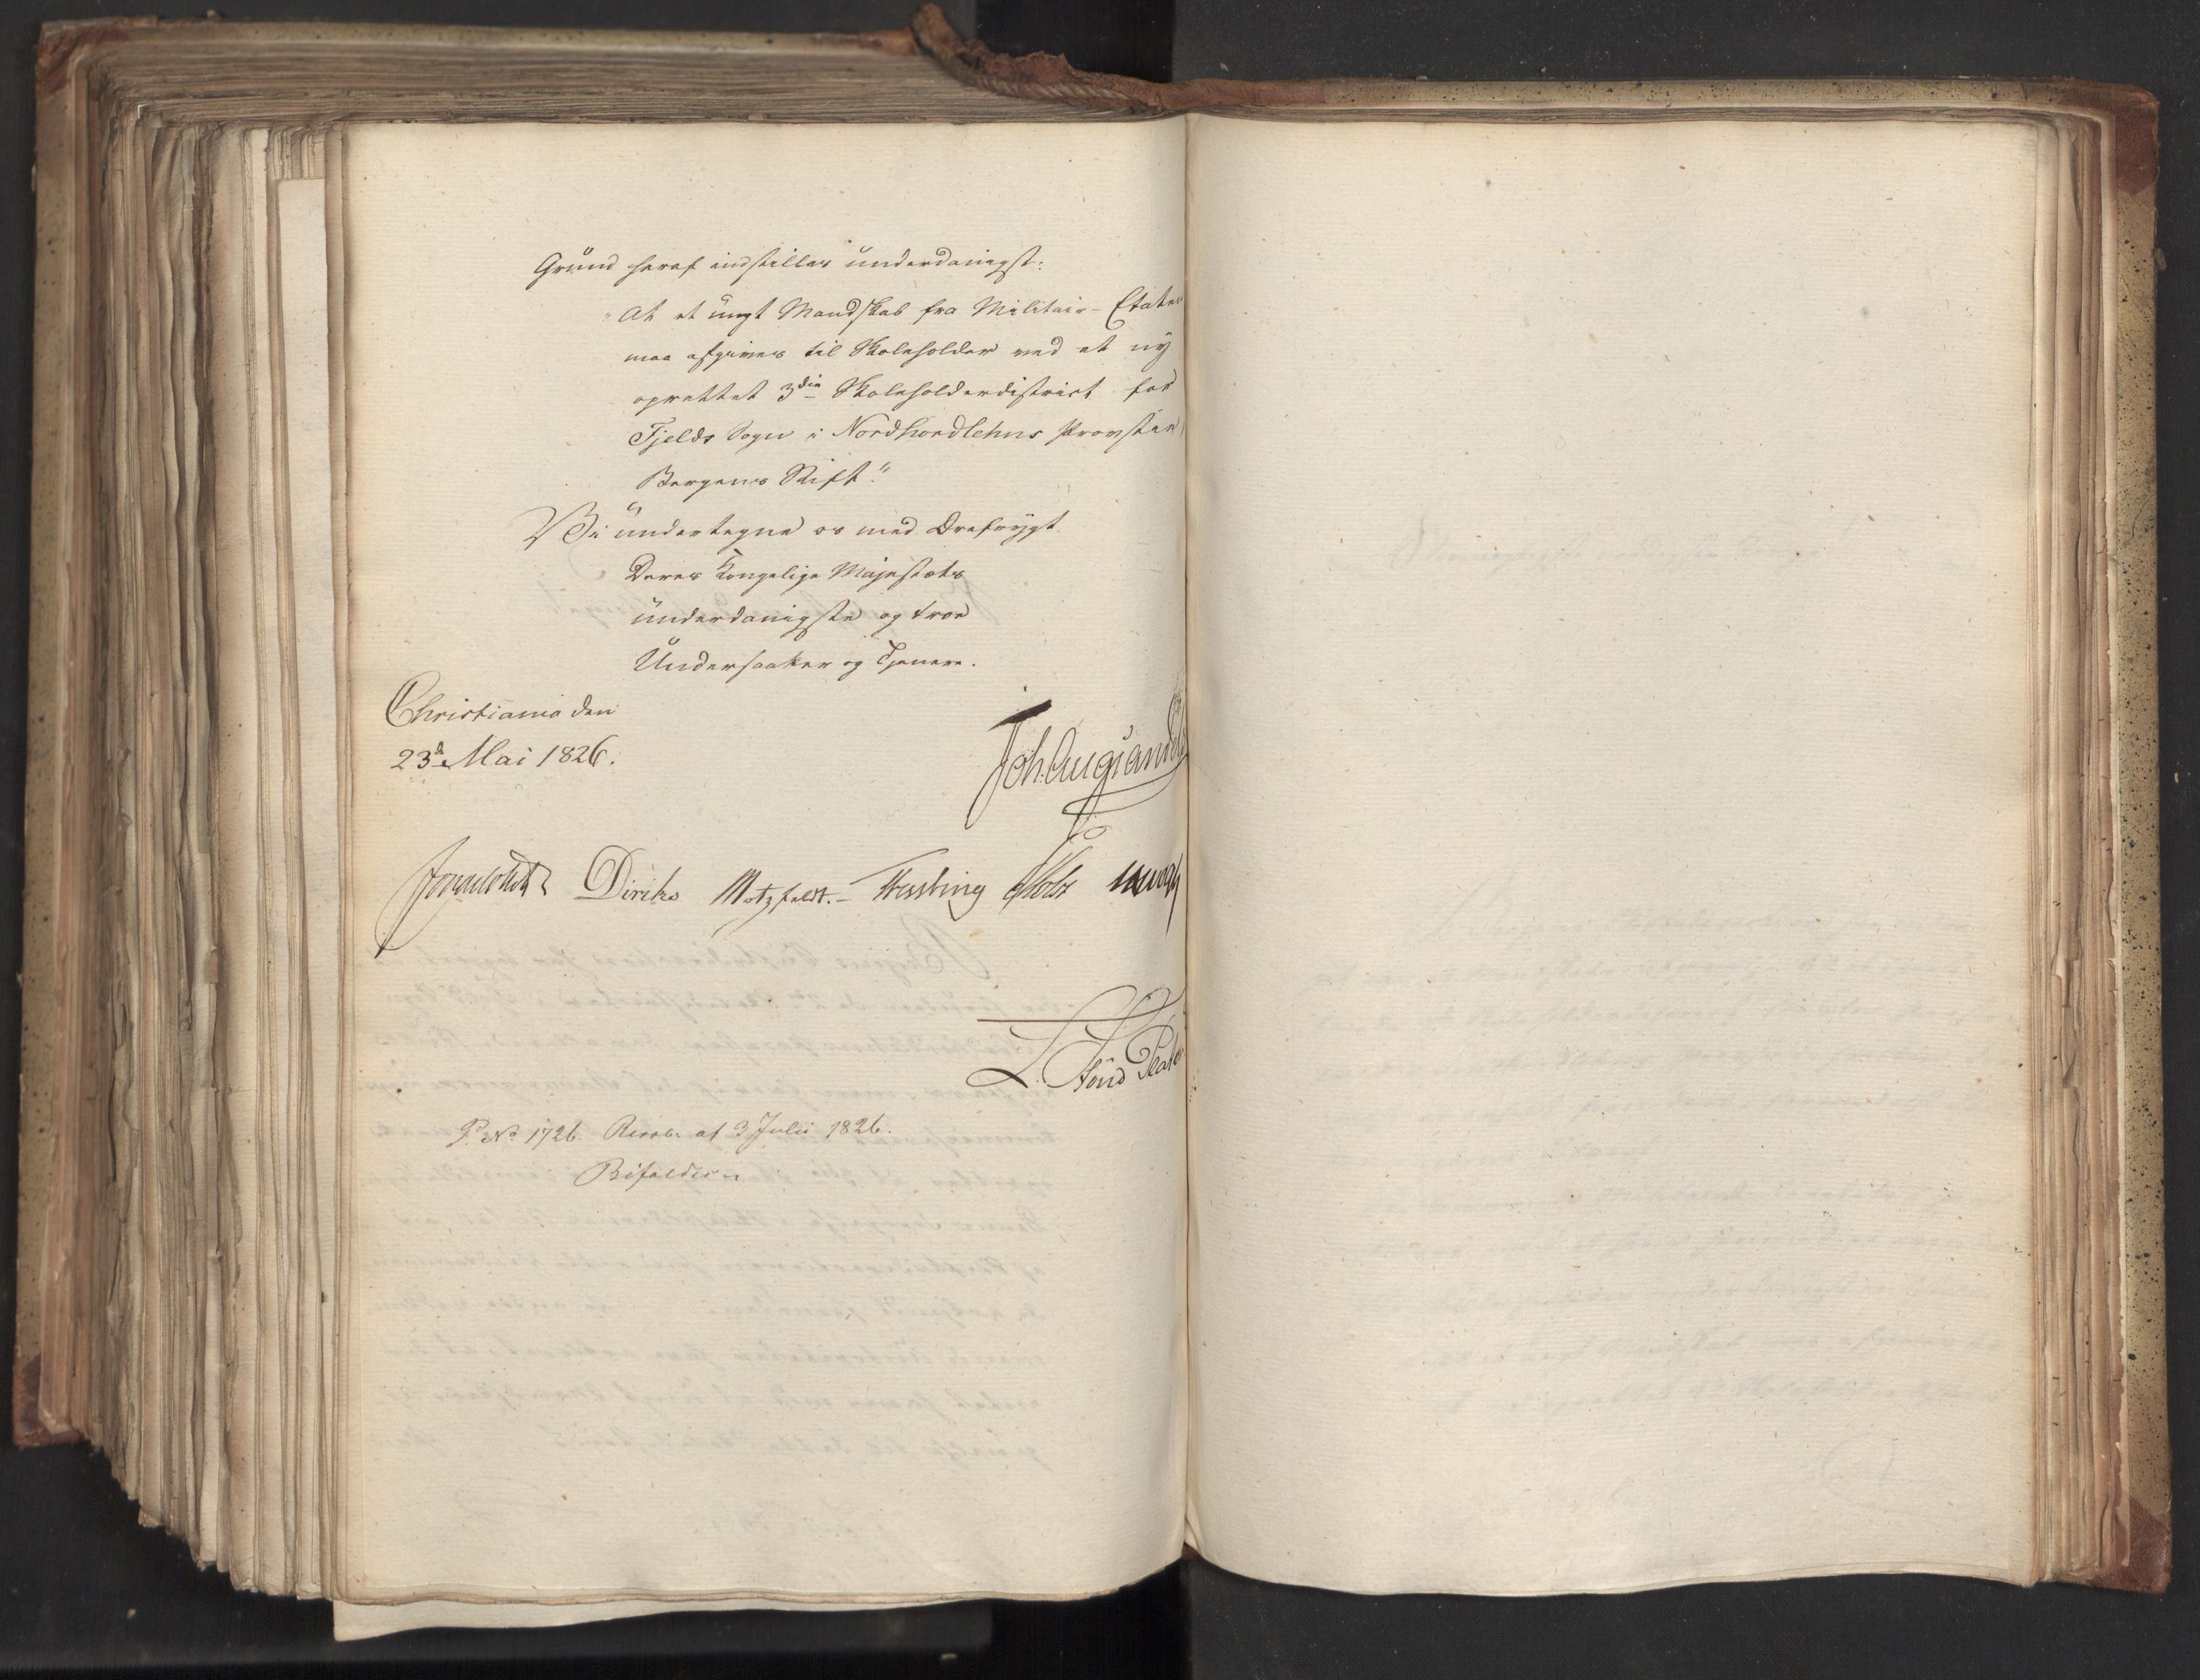 Grund heraf indstilles underdanigst:
"At et ungt Mandskab fra Militair-Etaten
maa afgives til Skoleholder ved et ny
oprettet 3die Skoleholderdistrict for
Fjelds Sogn i Nordhordlehns Provstie
Bergens Stift."
Vi undertegne os med Ærefrygt
Deres Kongelige Majestæts
underdanigste og troe
Undersaatter og Tjenere.
Christiania den
23d Mai 1826.
Joh. Aug. Sandels
Diriks Motzfeldt. Fasting Holst
L.
P. No 1726. Resol. af 3 Julii 1826.
Bifaldes